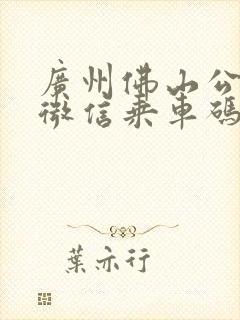 廣州佛山公
微信乘車碼
葉亦行